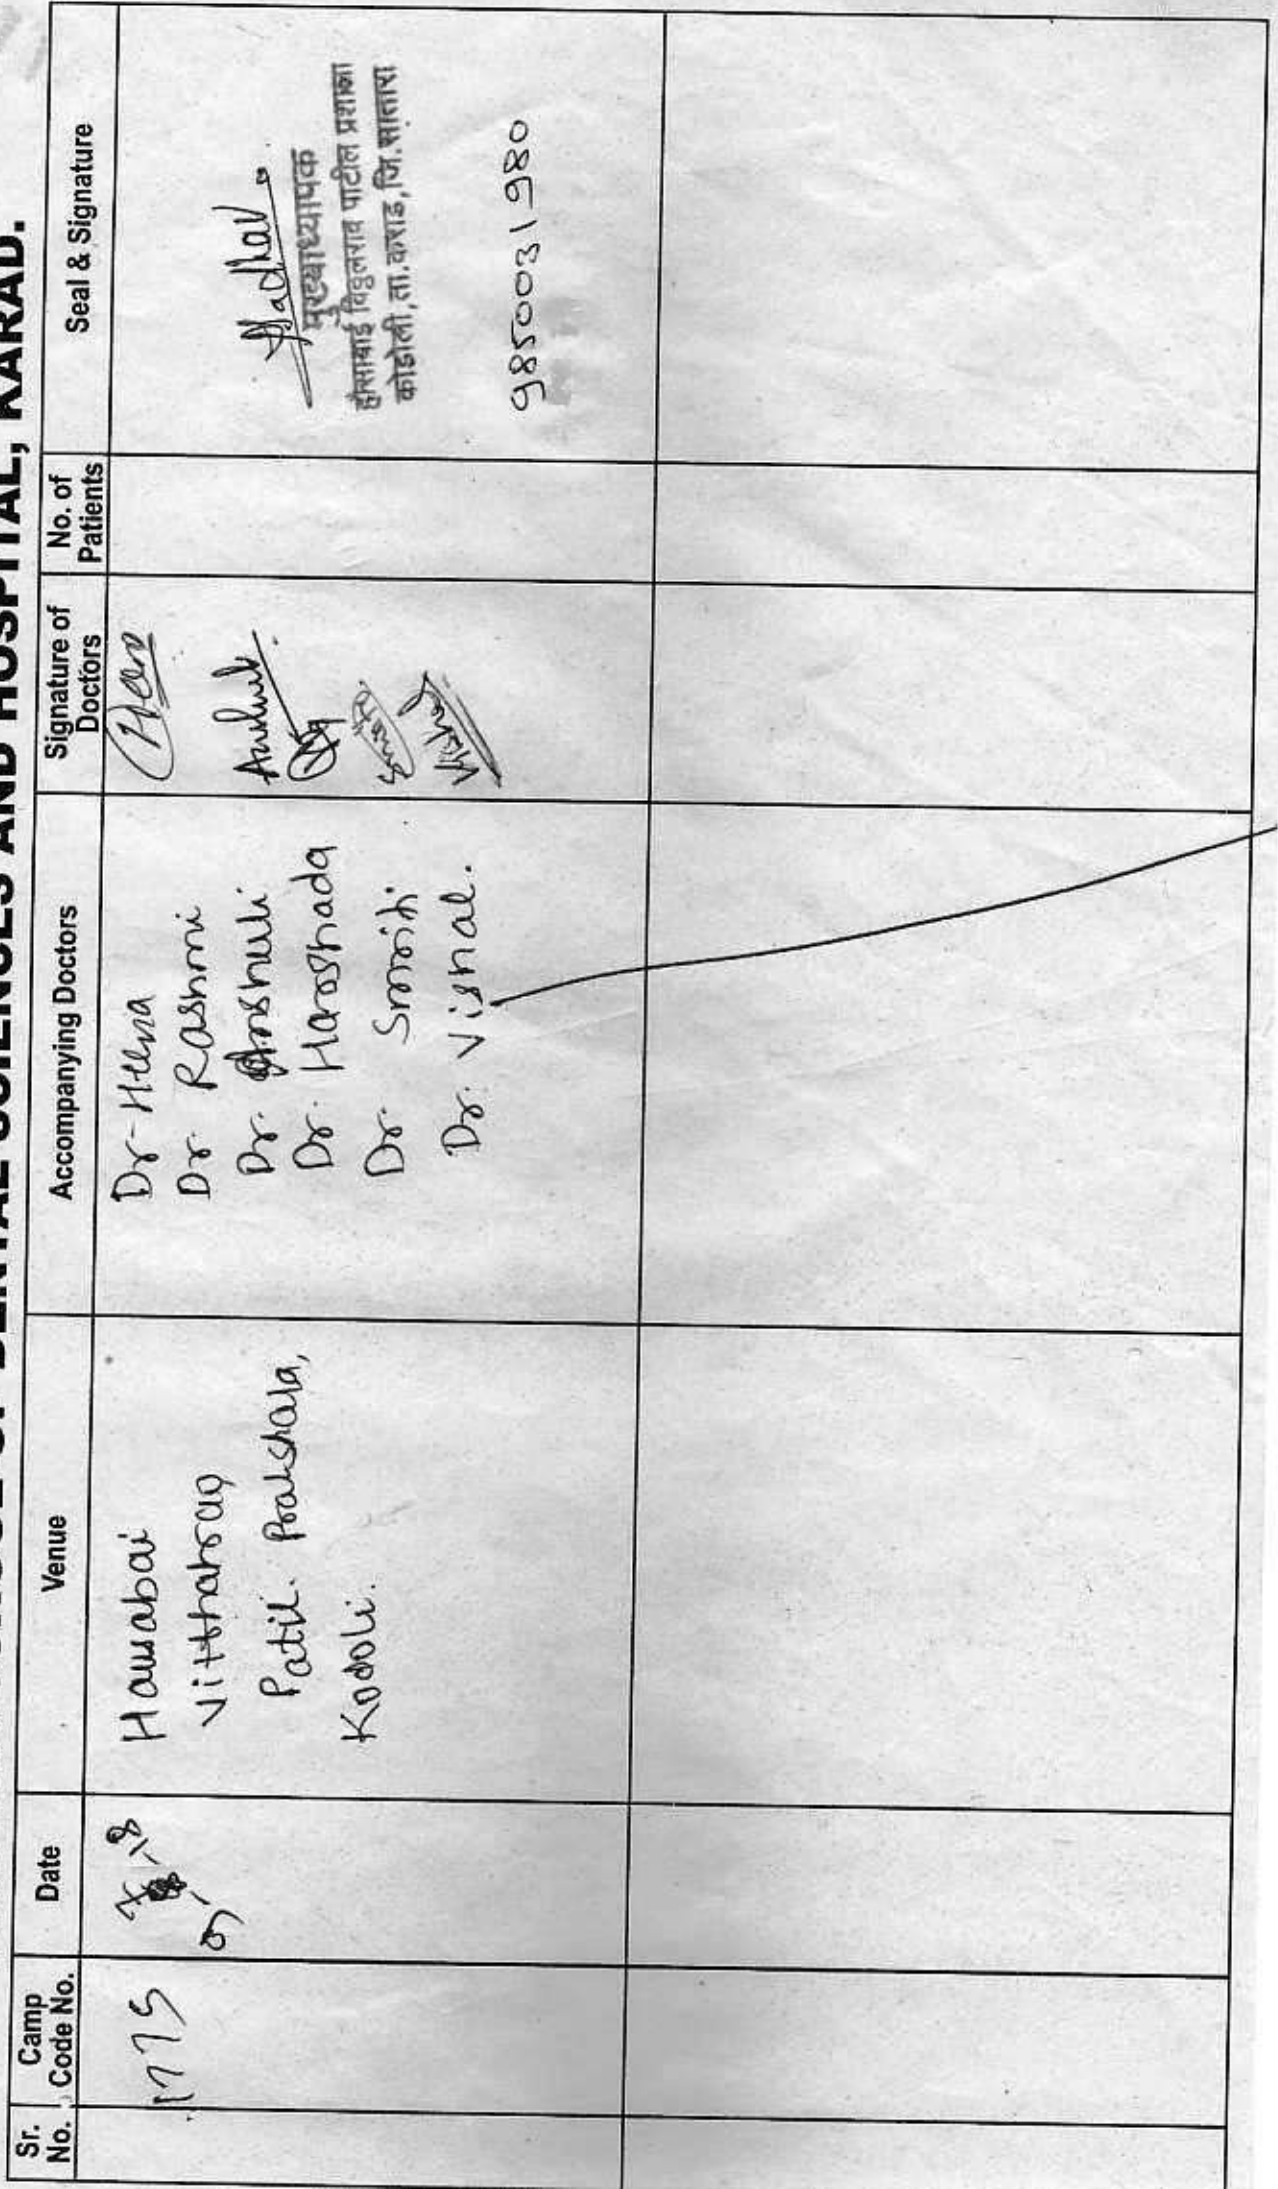 DENTAL SCIENCES AND HOSPITAL, KARAD.
Sr. No.
Camp Code No.
Date
Venue
Accompanying Doctors
Signature of Doctors
No. of Patients
Seal & Signature
1775
-18
Hausabai
Vitthalrao
Patil Prakshala,
Kodoli.
Dr. Heena
Dr. Rashmi
Dr. Anshuli
Dr. Harshada
Dr. Smriti
Dr. Vishal.
Vishal
मुख्याध्यापक
हौसाबाई विठ्ठलराव पाटील प्रशाला
कोडोली, ता. कराड, जि. सातारा
9850031980